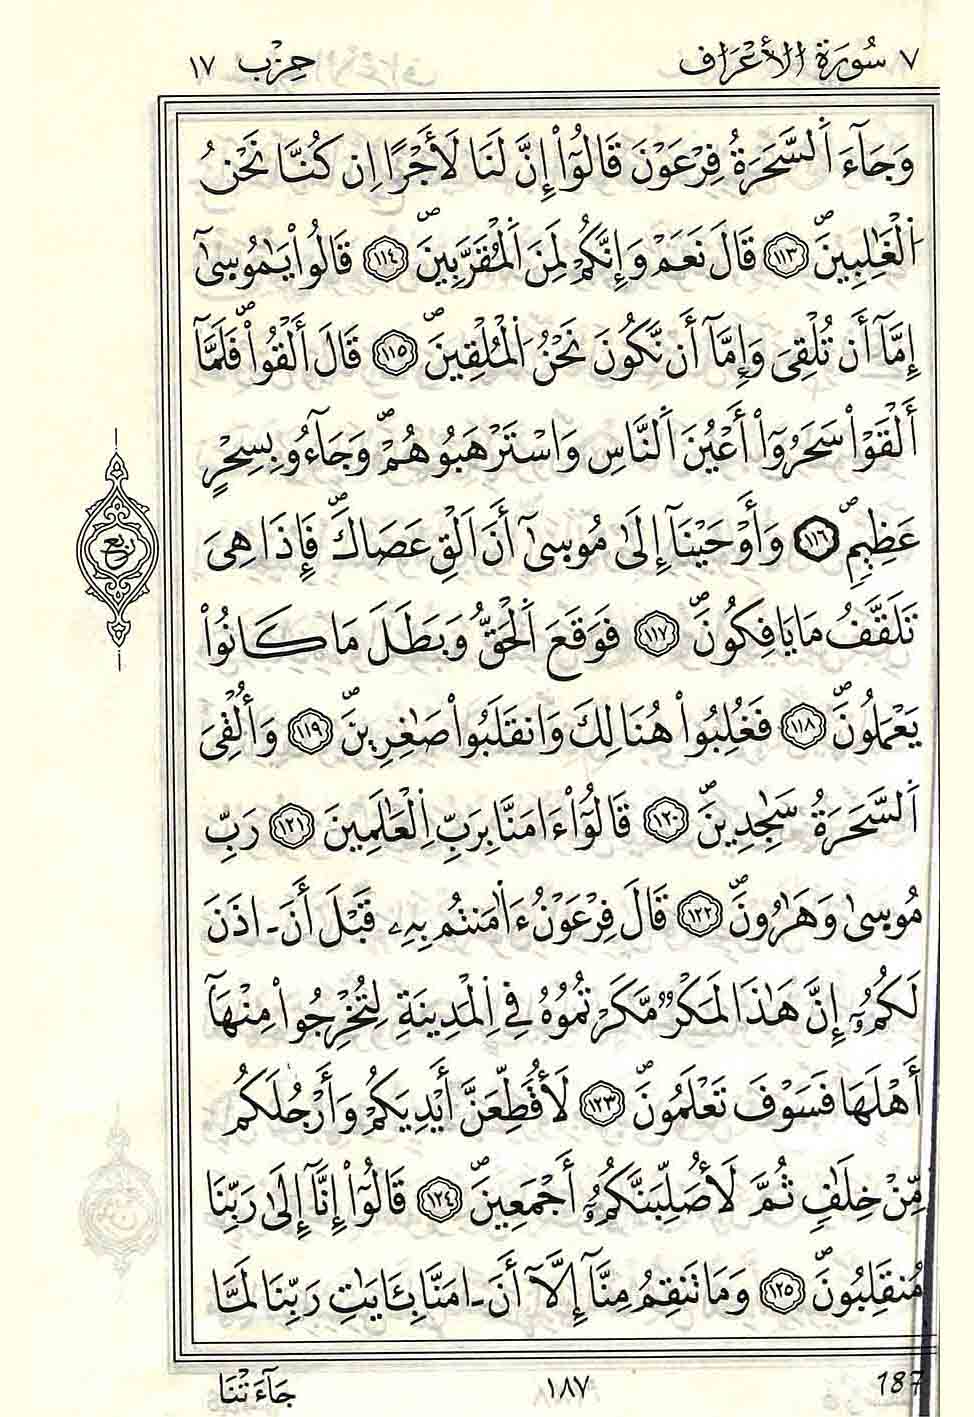 ٧ سُورَةُ الأَعْرَافِ حِزْب ١٧
وَجَآءَ اَ۬لسَّحَرَةُ فِرْعَوْنَ قَالُوٓاْ إِنَّ لَنَا لَأَجْرًا اِن كُنَّا نَحْنُ
اُ۬لْغَٰلِبِينَۖ ١١٣ قَالَ نَعَمْ وَإِنَّكُمْ لَمِنَ اَ۬لْمُقَرَّبِينَۖ ١١٤ قَالُواْ يَٰمُوس۪ىٰٓ
إِمَّآ أَن تُلْقِىَ وَإِمَّآ أَن نَّكُونَ نَحْنُ اُ۬لْمُلْقِينَۖ ١١٥ قَالَ أَلْقُواْۖ فَلَمَّآ
أَلْقَوْاْ سَحَرُوٓاْ أَعْيُنَ اَ۬لنَّاسِ وَاسْتَرْهَبُوهُمْۖ وَجَآءُو بِسِحْرٍ
عَظِيمٍۖ ١١٦ وَأَوْحَيْنَآ إِلَىٰ مُوس۪ىٰٓ أَنَ اَلْقِ عَصَاكَۖ فَإِذَا هِىَ
تَلَقَّفُ مَا يَافِكُونَۖ ١١٧ فَوَقَعَ اَ۬لْحَقُّ وَبَطَلَ مَا كَانُواْ
يَعْمَلُونَۖ ١١٨ فَغُلِبُواْ هُنَالِكَ وَانقَلَبُواْ صَٰغِرِينَۖ ١١٩ وَأُلْقِىَ
اَ۬لسَّحَرَةُ سَٰجِدِينَۖ ١٢٠ قَالُوٓاْ ءَامَنَّا بِرَبِّ اِ۬لْعَٰلَمِينَ ١٢١ رَبِّ
مُوس۪ىٰ وَهَٰرُونَۖ ١٢٢ قَالَ فِرْعَوْنُ ءَا۬مَنتُم بِهِۦ قَبْلَ أَنَ ـ اذَنَ
لَكُمُۥٓ إِنَّ هَٰذَا لَمَكْرٌ مَّكَرْتُمُوهُ فِے اِ۬لْمَدِينَةِ لِتُخْرِجُواْ مِنْهَآ
أَهْلَهَا فَسَوْفَ تَعْلَمُونَۖ ١٢٣ لَأُقَطِّعَنَّ أَيْدِيَكُمْ وَأَرْجُلَكُم
مِّنْ خِلَٰفٍ ثُمَّ لَأُصَلِّبَنَّكُمُۥٓ أَجْمَعِينَۖ ١٢٤ قَالُوٓاْ إِنَّآ إِلَىٰ رَبِّنَا
مُنقَلِبُونَۖ ١٢٥ وَمَا تَنقِمُ مِنَّآ إِلَّآ أَنَ ـ امَنَّا بِـَٔايَٰتِ رَبِّنَا لَمَّا
رُبع
جَآءَتْنَا ١٨٧ 187